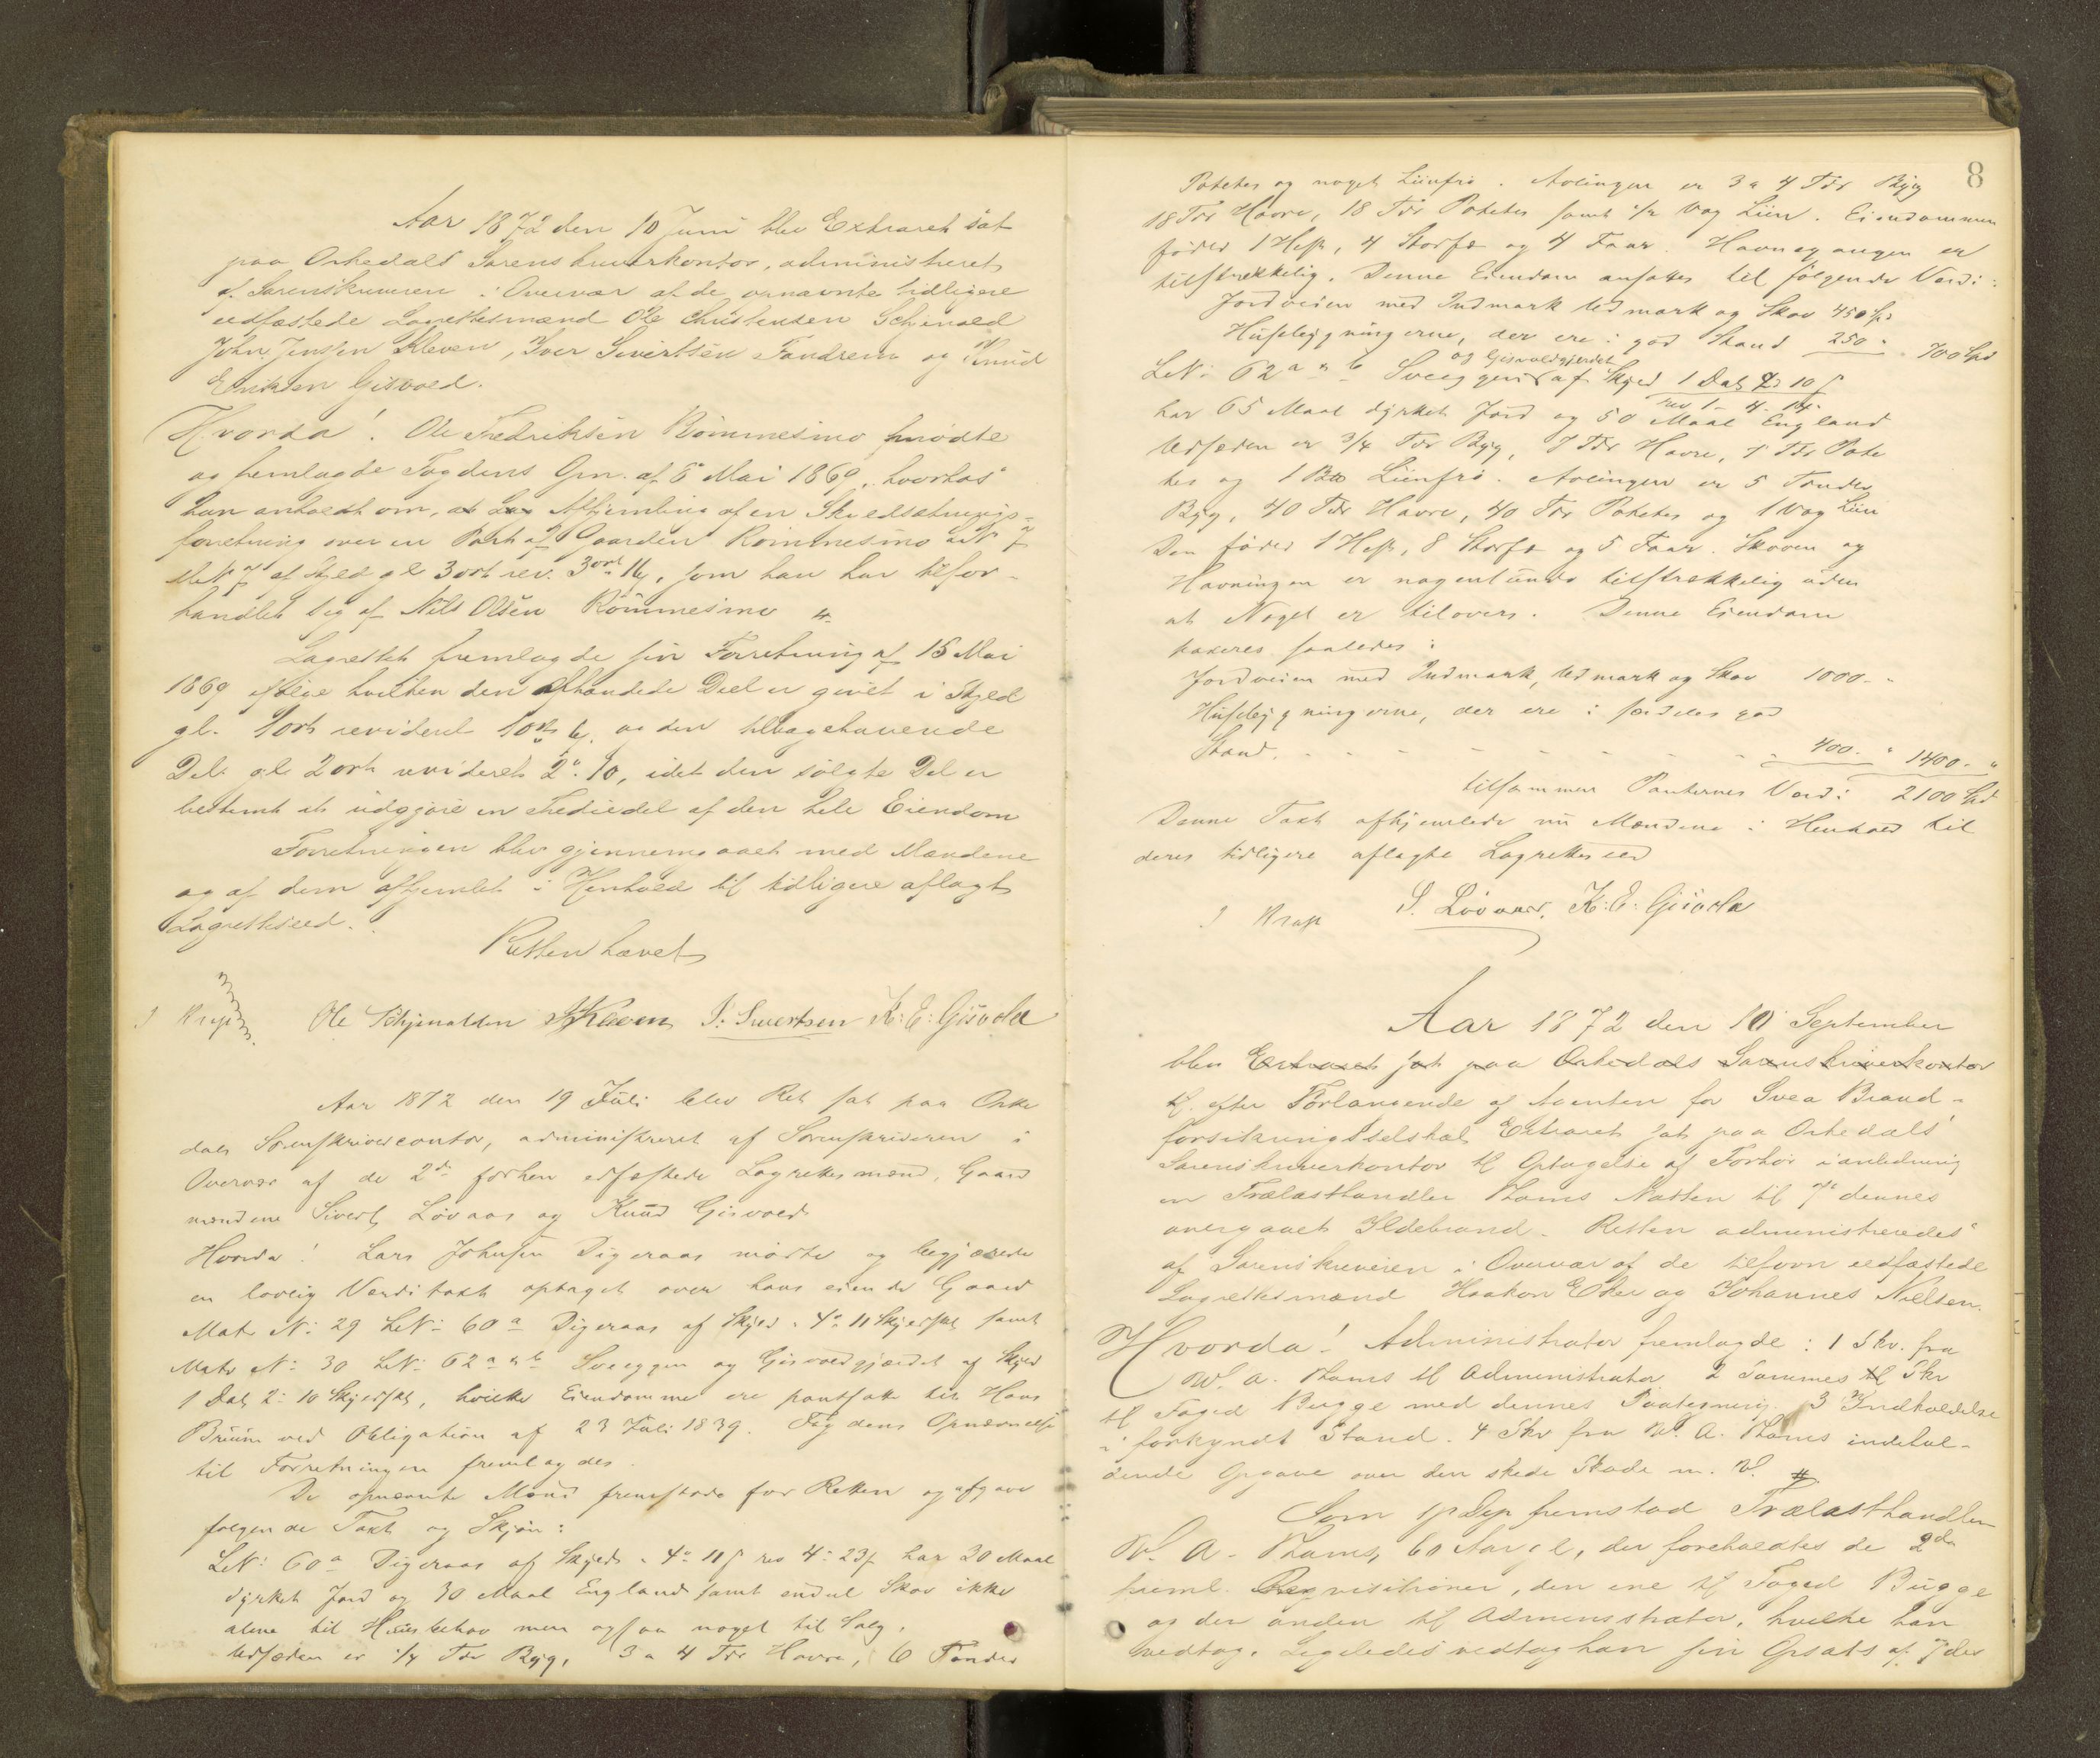 Aar 1872 den 10 Juni blev Extraret sat
paa Orkedals Sorenskriverkontor, administreret
af Sorenskriveren i Overvær af de opnævnte tidligere
eedfæstede Lagrettesmænd Ole Christensen Schjenald
John Jensen Kleven, Iver Sivertsen Fandrem og Knud
Eriksen Gisvold.
Hvorda! Ole Fredriksen Rømmesmo mødte
og fremlagde Fogdens Opn. af 6 Mai 1869, hvorhos
han anholdt om, Afhjemling af en Skyldsætnings-
forretning over en Part af Gaarden Rømmesmo
af Skyld gl 3 ort rev. 3 ort 16, som han har tilfor-
handlet sig af Nils Olsen Rømmesmo
Lagrettet fremlagde sin Forretning af 15 Mai
1869 ifølge hvilken den afhændede Deel er givet i Skyld
gl. 1 ort revideret 1 ort 6, og den tilbagehavende
Del gl. 2 ort revideret 2 " 10, idet den solgte Del er
bestemt at udgjøre en Trediedel af den hele Eiendom
Forretningen blev gjennemgaaet med Mændene
og af dem afhjemlet i Henhold til tidligere aflagt
Lagretteseed.
Retten hævet
Krag Ole Schjenalden JJKleven I: Sivertsen K: E: Gisvold
Aar 1872 den 19 Juli blev Ret sat paa Orke
dals Sorenskrivercontor, administreret af Sorenskriveren i
Overvær af de 2de forhen edfæstede Lagrettesmænd, Gaard
mændene Sivert Løvaas og Knud Gisvold
Hvorda! Lars Johnsen Digeraas mødte og begjærede
en lovlig Verditaxt optaget over hans eiende Gaard
Matr No 29 LNo 60a Digeraas af Skyld " 4 " 11 Skjerfsk samt
Matr No 30 LNo 62a & b Sveeggen og Gisvoldgjærdet af Skyld
1 Dal 2 " 10 Skjerfsk, hvilke Eiendomme ere pantsatte til Hans
Bruun ved Obligation af 23 Juli 1839. Fogdens Opnævnelse
til Forretningen fremlagdes.
De opnævnte Mænd fremstode for Retten og afgave
følgende Taxt og Skjøn:
LNo 60a Digeraas af Skyld " 4 " 11 s rev 4 " 23 s har 30 Maal
dyrket Jord og 30 Maal England samt endel Skov ikke
alene til Huusbehov men ogsaa noget til Salg.
Udsæden er 1/4 Tdr Byg, 3 a 4 Tdr Havre, 6 Tønder
8
Potetes og noget Liinfrø. Avlingen er 3 a 4 Tdr Byg
18 Tdr Havre, 18 Tdr Potetes samt 1/2 Vog Liin. Eiendommen
føder 1 Hest, 4 Storfæ og 4 Faar. Havnegangen er
tilstrækkelig. Denne Eiendom ansattes til følgende Verdi:
Jordveien med Indmark Udmark og Skov 450 Spd
Husebygningerne, der ere i god Stand 250 " 700 Spd
og Gisvoldgjerdet
LNo 62a & b Sveeggen af Skyld 1 Dal 2 " 10 s
rev 1 - 4 - 14.
har 65 Maal dyrket Jord og 50 Maal England
Udsæden er 3/4 Tdr Byg, 7 Tdr Havre, 7 Tdr Pote
tes og 1 Liinfrø. Avlingen er 5 Tønder
Byg, 40 Tdr Havre, 40 Tdr Potetes og 1 Vog Liin
Den føder 1 Hest, 8 Storfæ og 5 Faar. Skoven og
Havningen er nogenlunde tilstrækkelig uden
at Noget er tilovers. Denne Eiendom
taxeres saaledes:
Jordveien med Indmark, Udmark og Skov 1000 - "
Husebygningerne, der ere i særdeles god
Stand. - - - - - - - 400 - " 1400 - "
tilsammen Panternes Verdi 2100 Spd
Denne Taxt afhjemlede nu Mændene i Henhold til
deres tidligere aflagte Lagretteseed
Krag S. Løvaas. K: E: Gisvold
Aar 1872 den 10 September
blev Extraret sat paa Orkedals Sorenskriverkontor
efter Forlangende af Agenten for Svea Brand-
forsikringsselskab Extraret sat paa Orkedals
Sorenskriverkontor til Optagelse af Forhør i anledning
en Trælasthandler Thams Natten til 7de dennes
overgaaet Ildebrand. Retten administreredes
af Sorenskriveren i Overvær af de tilforn eedfæstede
Lagrettesmænd Haakon Eker og Johannes Nielsen.
Hvorda! Administrator fremlagde: 1 Skr. fra
W. A. Thams til Administrator 2 Sammes Skr
til Foged Bugge med dennes Paategning 3 Indkaldelse
i forkyndt Stand. 4 Skr fra W. A. Thams indehol-
dende Opgave over den skede Skade m. V.
Som 1ste Dep fremstod Trælasthandler
W. A. Thams, 60 Aar gl, der foreholdtes de 2de
freml. Reqvisitioner, den ene til Foged Bugge
og den anden til Administrator, hvilke han
vedtog. Ligeledes vedtog han sin Opsats af 7 des